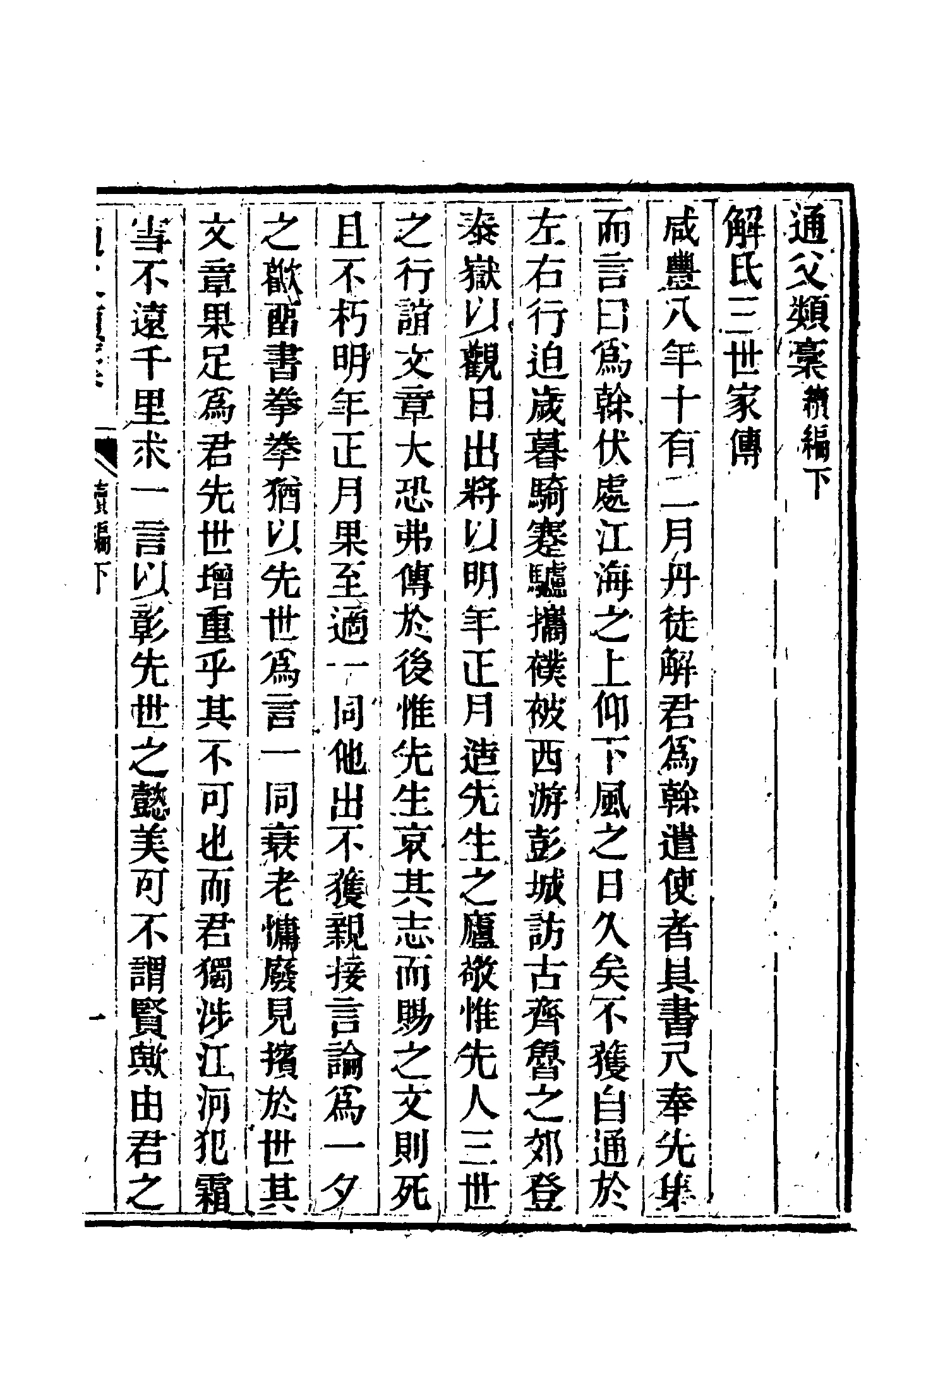 通父類稾續編下
解氏三世家傳
咸豐八年十有二月丹徒解君爲榦遣使者具書尺奉先集
而言曰爲榦伏處江海之上仰下風之日久矣不獲自通於
左右行迫歲暮騎蹇驢攜襆被西游彭城訪古齊魯之郊登
泰嶽以觀日出將以明年正月造先生之廬敬惟先人三世
之行誼文章大恐弗傳於後惟先生哀其志而賜之文則死
且不朽明年正月果至適一同他出不獲親接言論爲一夕
之歡畱書拳拳猶以先世爲言一同衰老慵廢見擯於世其
文章果足爲君先世增重乎其不可也而君獨涉江河犯霜
雪不遠千里求一言以彰先世之懿美可不謂賢歟由君之
續編下
一